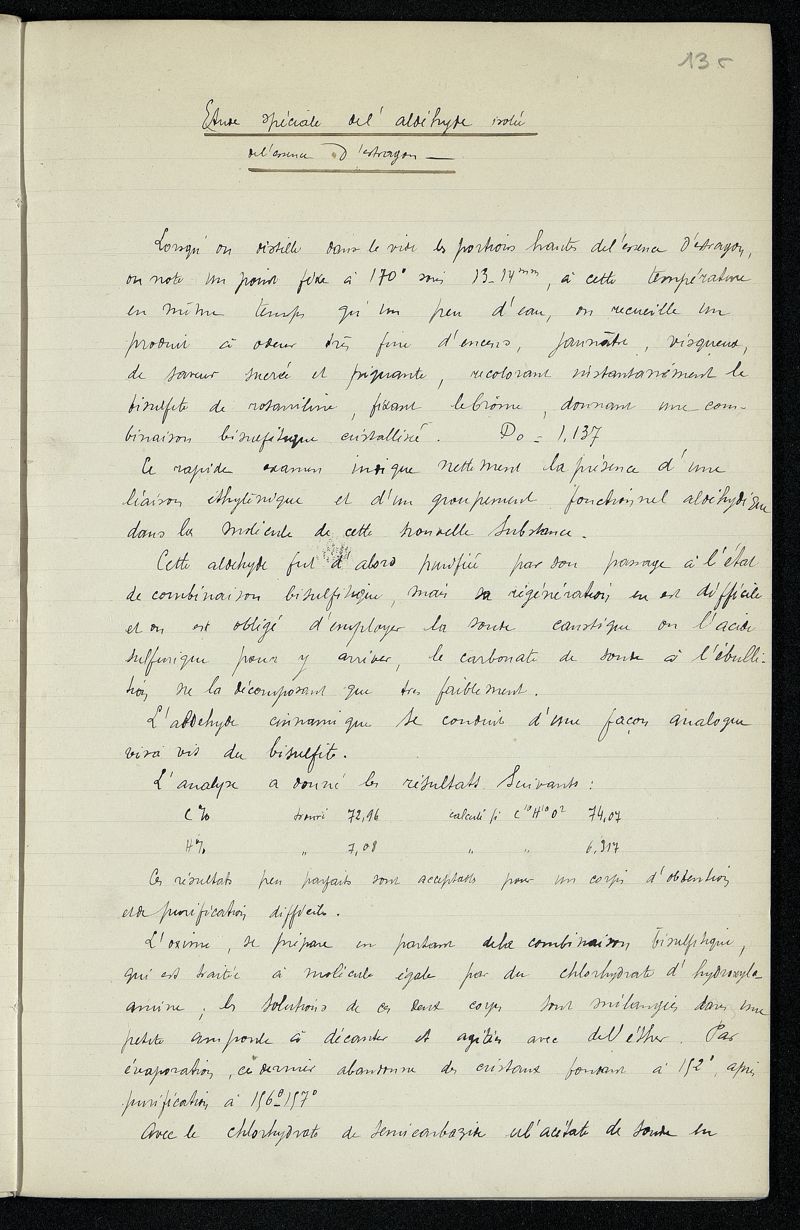 135
Etude spéciale de l'aldéhyde isolée
de l'essence d'estragon —
Lorsqu'on distille dans le vide les portions hautes de l'essence d'estragon,
on note un point fixe à 170° sous 13-14mm, à cette température
en même temps qu'un peu d'eau, on recueille un
produit à odeur très fine d'encens, jaunâtre, visqueux,
de saveur sucrée et piquante, recolorant instantanément le
bisulfite de rosaniline, fixant le brôme, donnant une com-
binaison bisulfitique cristallisée. Do = 1,137
Ce rapide examen indique nettement la présence d'une
liaison éthylénique et d'un groupement fonctionnel aldéhydique
dans la molécule de cette nouvelle substance.
Cette aldehyde fut d'abord purifiée par son passage à l'état
de combinaison bisulfitique, mais sa régénération en est difficile
et on est obligé d'employer la soude caustique ou l'acide
sulfurique pour y arriver, le carbonate de soude à l'ébulli-
tion ne la décomposant que très faiblement.
L'aldehyde cinnamique se conduit d'une façon analogue
vis à vis du bisulfite.
L'analyse a donné les résultats suivants :
C% trouvé 72,96 calculé pr C10H10O2 74,07
H% " 7,08 " " 6,317
Ces résultats peu parfaits sont acceptables pour un corps d'obtention
et de purification difficiles.
L'oxime, se prépare en partant de la combinaison bisulfitique,
qui est traitée à molécule égale par du chlorhydrate d'hydroxyla-
amine ; les solutions de ces deux corps sont mélangées dans une
petite ampoule à décanter et agitées avec de l'éther. Par
évaporation, ce dernier abandonne des cristaux fondant à 152°, après
purification à 156°-157°
Avec le chlorhydrate de semicarbazide et l'acétate de soude en